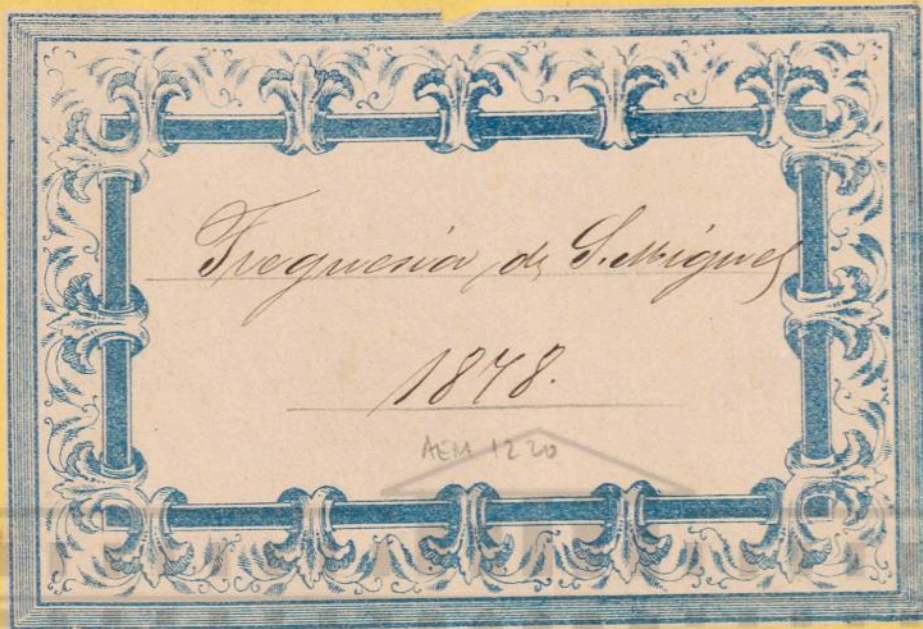 Freguesia de S. Miguel
1878.
AEM 1220